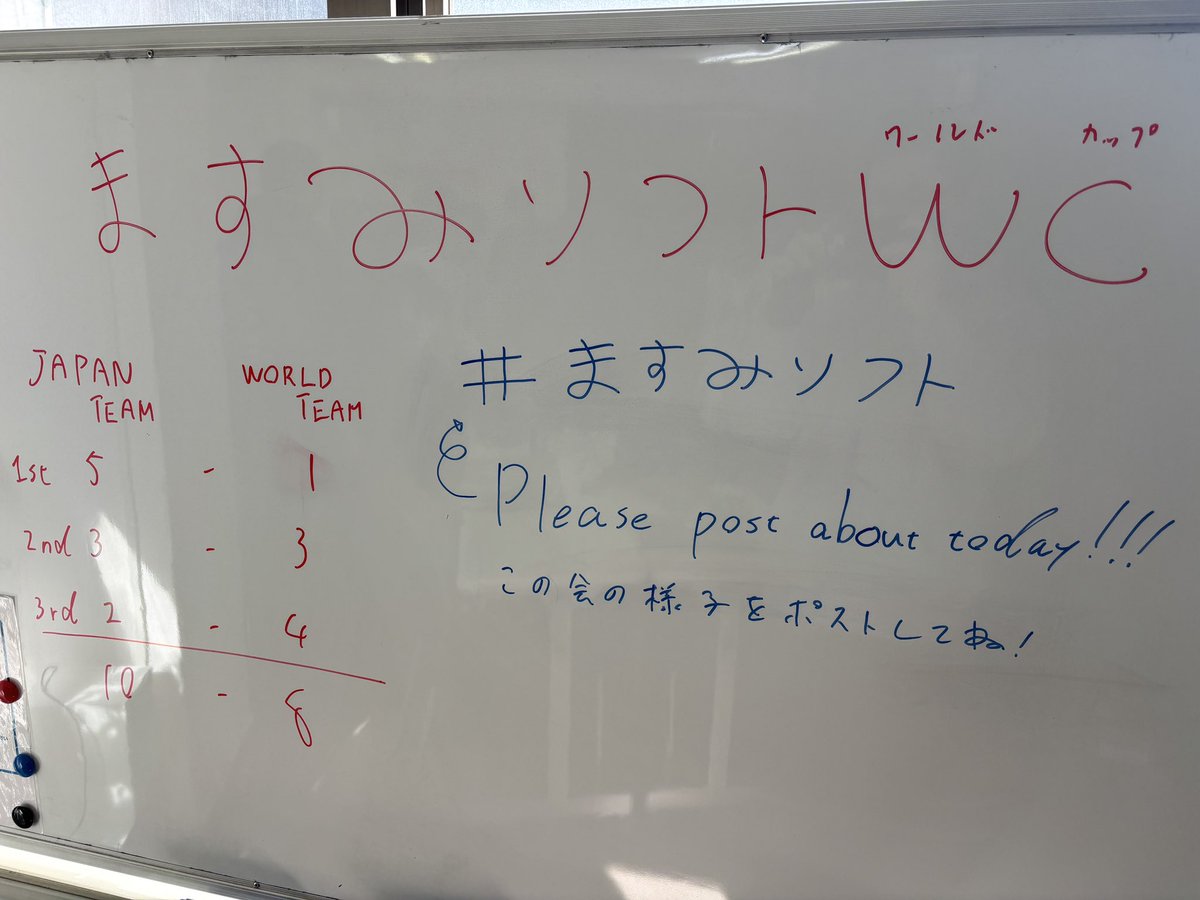 ワールド カップ
ますみソフトWC
JAPAN TEAM WORLD TEAM
1st 5 - 1
2nd 3 - 3
3rd 2 - 4
10 - 8
#ますみソフト
Please post about today!!!
この会の様子をポストしてね!